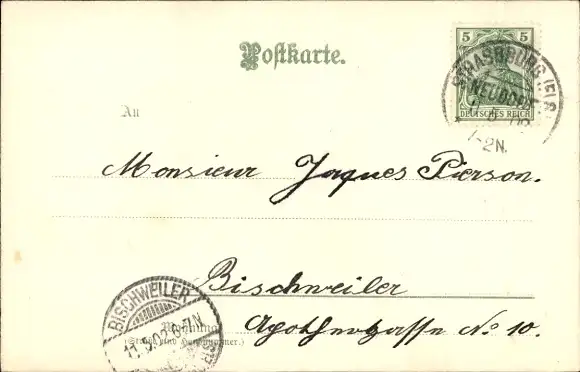 Postkarte.
5 5
DEUTSCHES REICH
STRASSBURG (ELS.)
NEUDORF
1-2N.
An
Monsieur Jaques Pierson.
Bischweiler
Apothergasse No 10.
BISCHWEILER
Wohnung
(Straße und Hausnummer.)